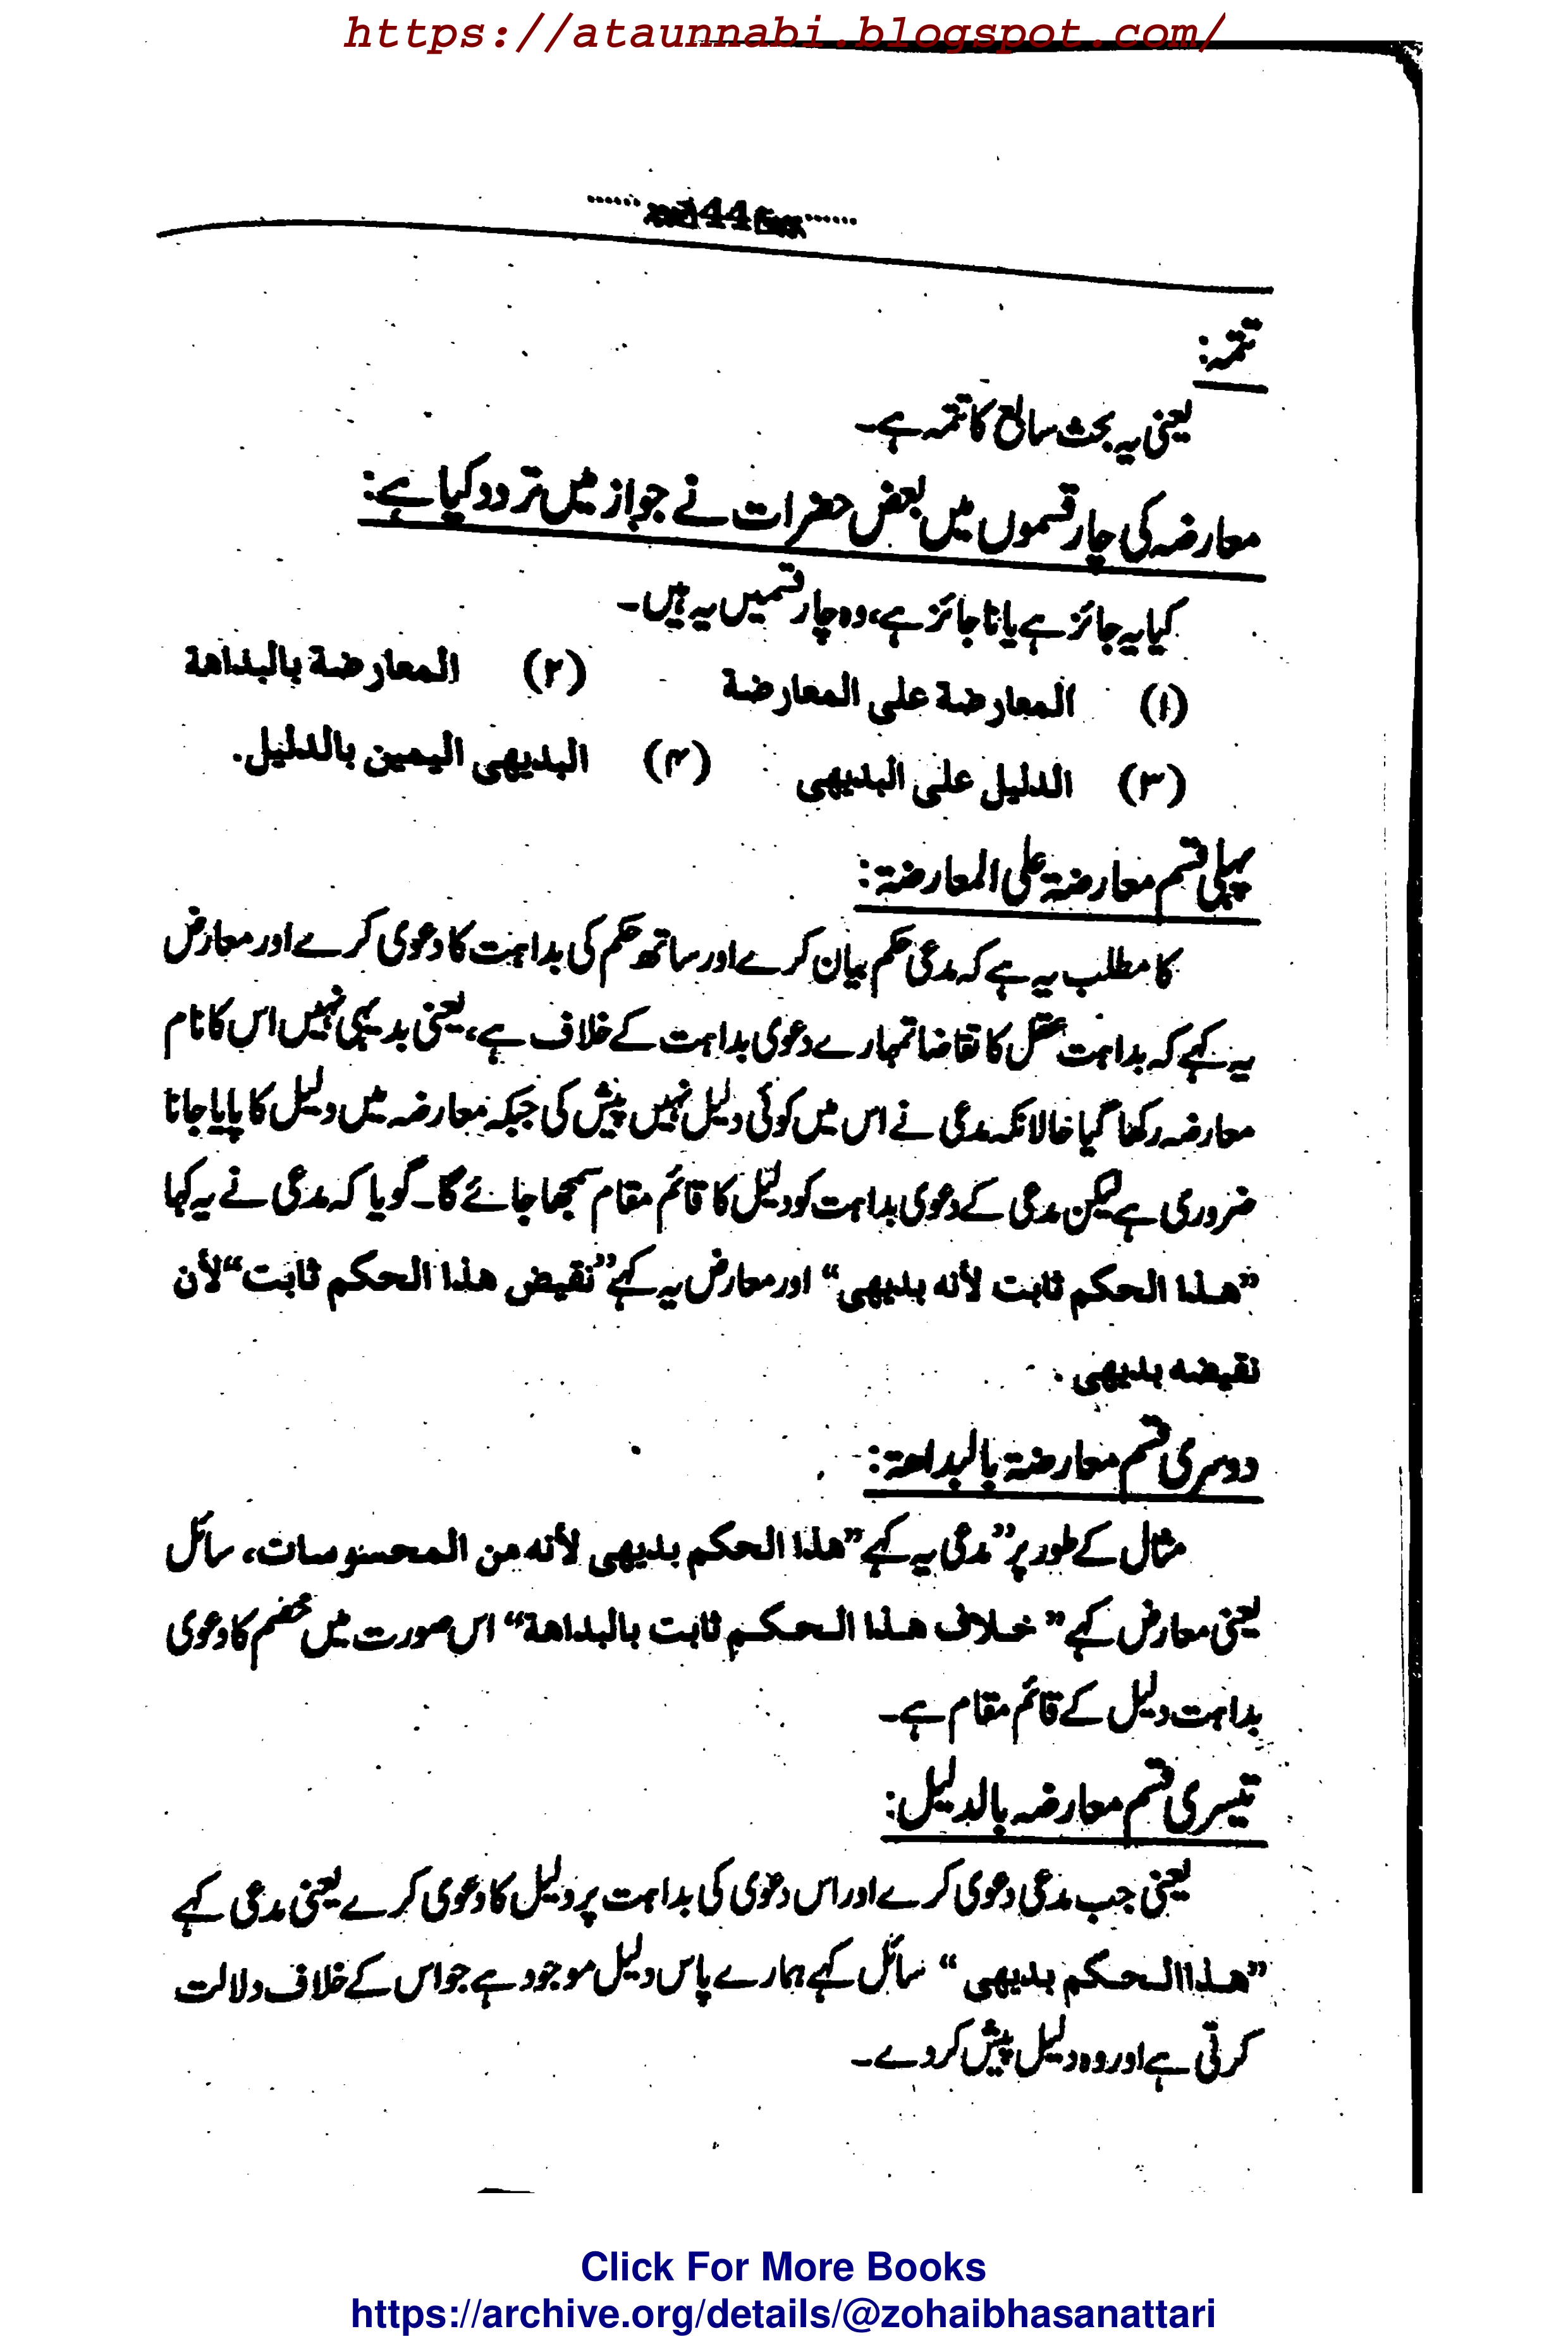 https://ataunnabi.blogspot.com/
144
تتمہ:
یعنی یہ بحث سابع کا تتمہ ہے۔
معارضہ کی چار قسموں میں بعض حضرات نے جواز میں تردد کیا ہے:
کیا یہ جائز ہے یا نا جائز ہے، وہ چار قسمیں یہ ہیں۔
(۱) المعارضة على المعارضة (۲) المعارضة بالبداهة
(۳) الدليل على البديهى (۴) البديهى اليمين بالدليل.
پہلی قسم معارضۃ علی المعارضۃ:
کا مطلب یہ ہے کہ مدعی حکم بیان کرے اور ساتھ حکم کی بداہت کا دعوی کرے اور معارض
یہ کہے کہ بداہت عقل کا تقاضا تمہارے دعوی بداہت کے خلاف ہے، یعنی بدیہی نہیں اس کا نام
معارضہ رکھا گیا حالانکہ مدعی نے اس میں کوئی دلیل نہیں پیش کی جبکہ معارضہ میں دلیل کا پایا جانا
ضروری ہے لیکن مدعی کے دعوی بداہت کو دلیل کا قائم مقام سمجھا جائے گا۔ گویا کہ مدعی نے یہ کہا
”هذا الحكم ثابت لأنه بديهى“ اور معارض یہ کہے ”نقيض هذا الحكم ثابت“ لأن
نقيضه بديهى.
دوسری قسم معارضۃ بالبداھۃ:
مثال کے طور پر ”مدعی یہ کہے ”هذا الحكم بديهى لأنه من المحسوسات، سائل
یعنی معارض کہے ” خلاف هذا الحكم ثابت بالبداهة“ اس صورت میں خصم کا دعوی
بداہت دلیل کے قائم مقام ہے۔
تیسری قسم معارضہ بالدلیل:
یعنی جب مدعی دعوی کرے اور اس دعوی کی بداہت پر دلیل کا دعوی کرے یعنی مدعی کہے
”هذا الحكم بديهى “ سائل کہے ہمارے پاس دلیل موجود ہے جو اس کے خلاف دلالت
کرتی ہے اور وہ دلیل پیش کردے۔
Click For More Books
https://archive.org/details/@zohaibhasanattari